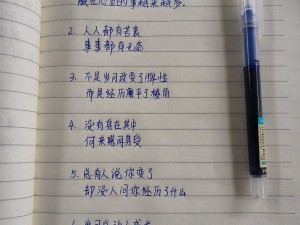 2. 人人都有苦衷
事事都有无奈
3. 不是岁月改变了脾性
而是经历磨平了棱角
4. 没有身在其中
何来感同身受
5. 总有人说你变了
却没人问你经历了什么